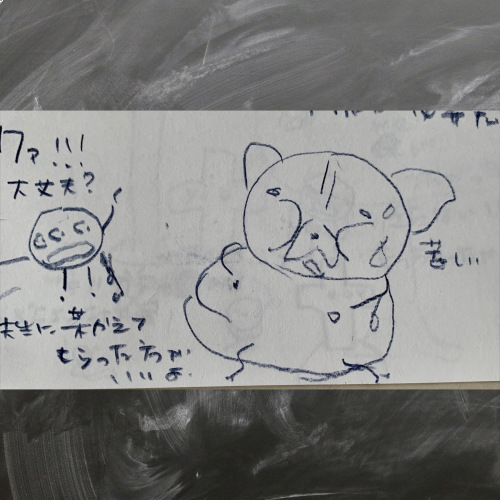 ワァ!!!
大丈夫?
苦しい
先生に薬かえて
もらった方が
いいよ